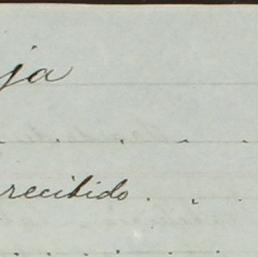 ja
recibido